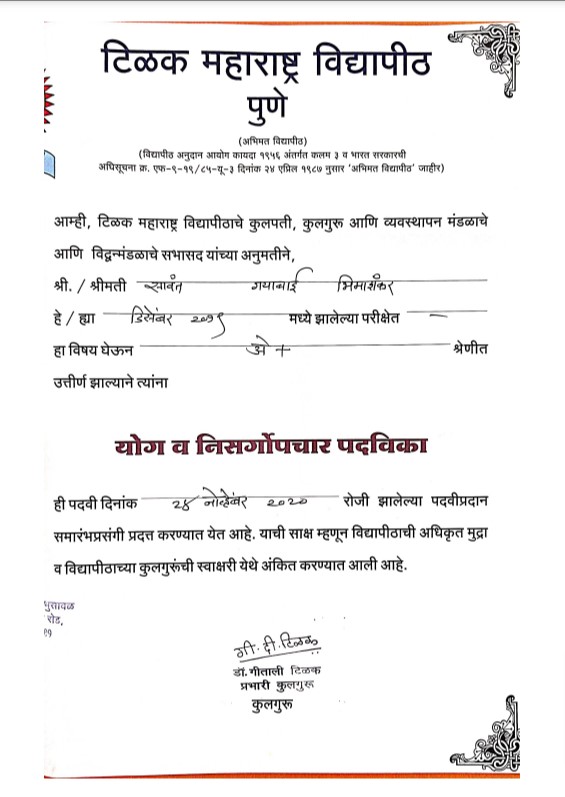 टिळक महाराष्ट्र विद्यापीठ
पुणे
(अभिमत विद्यापीठ)
(विद्यापीठ अनुदान आयोग कायदा १९५६ अंतर्गत कलम ३ व भारत सरकारची
अधिसूचना क्र. एफ-९-१९/८५-यू-३ दिनांक २४ एप्रिल १९८७ नुसार 'अभिमत विद्यापीठ' जाहीर)
आम्ही, टिळक महाराष्ट्र विद्यापीठाचे कुलपती, कुलगुरू आणि व्यवस्थापन मंडळाचे
आणि विद्वन्मंडळाचे सभासद यांच्या अनुमतीने,
श्री. / श्रीमती सावंत गयाबाई भिमाशंकर
हे / ह्या डिसेंबर २०१९ मध्ये झालेल्या परीक्षेत –
हा विषय घेऊन अे + श्रेणीत
उत्तीर्ण झाल्याने त्यांना
योग व निसर्गोपचार पदविका
ही पदवी दिनांक २४ नोव्हेंबर २०२० रोजी झालेल्या पदवीप्रदान
समारंभप्रसंगी प्रदत्त करण्यात येत आहे. याची साक्ष म्हणून विद्यापीठाची अधिकृत मुद्रा
व विद्यापीठाच्या कुलगुरूंची स्वाक्षरी येथे अंकित करण्यात आली आहे.
भुसावळ
रोड,
गी. दी. टिळक
डॉ. गीताली टिळक
प्रभारी कुलगुरू
कुलगुरू